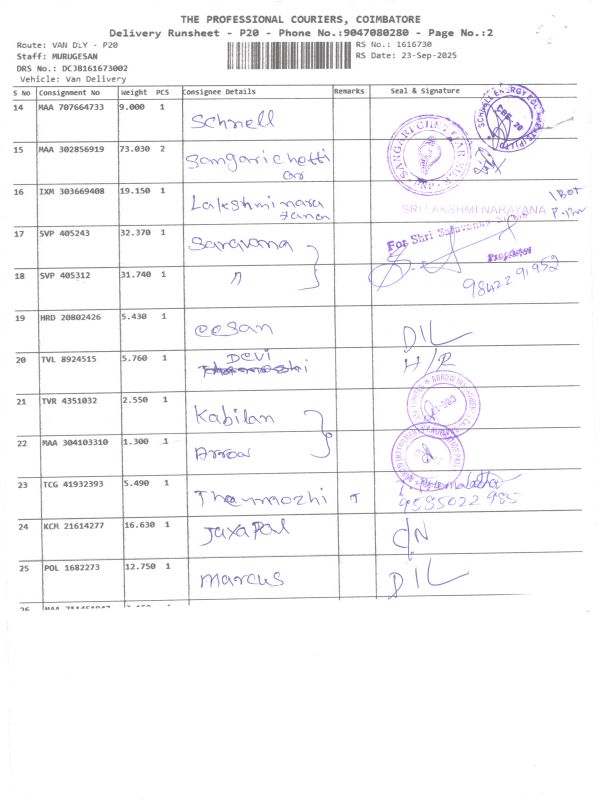 THE PROFESSIONAL COURIERS, COIMBATORE
Delivery Runsheet - P20 - Phone No.:9047080280 - Page No.:2
Route: VAN DLY - P20
RS No.: 1616730
Staff: MURUGESAN
RS Date: 23-Sep-2025
DRS No.: DCJB161673002
Vehicle: Van Delivery
S No Consignment No Weight PCS Consignee Details Remarks Seal & Signature
14 MAA 707664733 9.000 1 Schnell
15 MAA 302856919 73.030 2 Sangarichetti
car
16 IXM 303669408 19.150 1 Lakshmi nara
SRI LAKSHMI NARAYANA
1 Box
17 SVP 405243 32.370 1 Saravana
For Shri Saravana
Proprietor
18 SVP 405312 31.740 1 "
9842291952
19 HRD 20802426 5.430 1 eesan DIL
20 TVL 8924515 5.760 1 DEVI H/R
21 TVR 4351032 2.550 1 Kabilan
22 MAA 304103310 1.300 1 Arrow
23 TCG 41932393 5.490 1 Thenmozhi
9585022985
24 KCM 21614277 16.630 1 Jaxapal C/N
25 POL 1682273 12.750 1 Marcus DIL